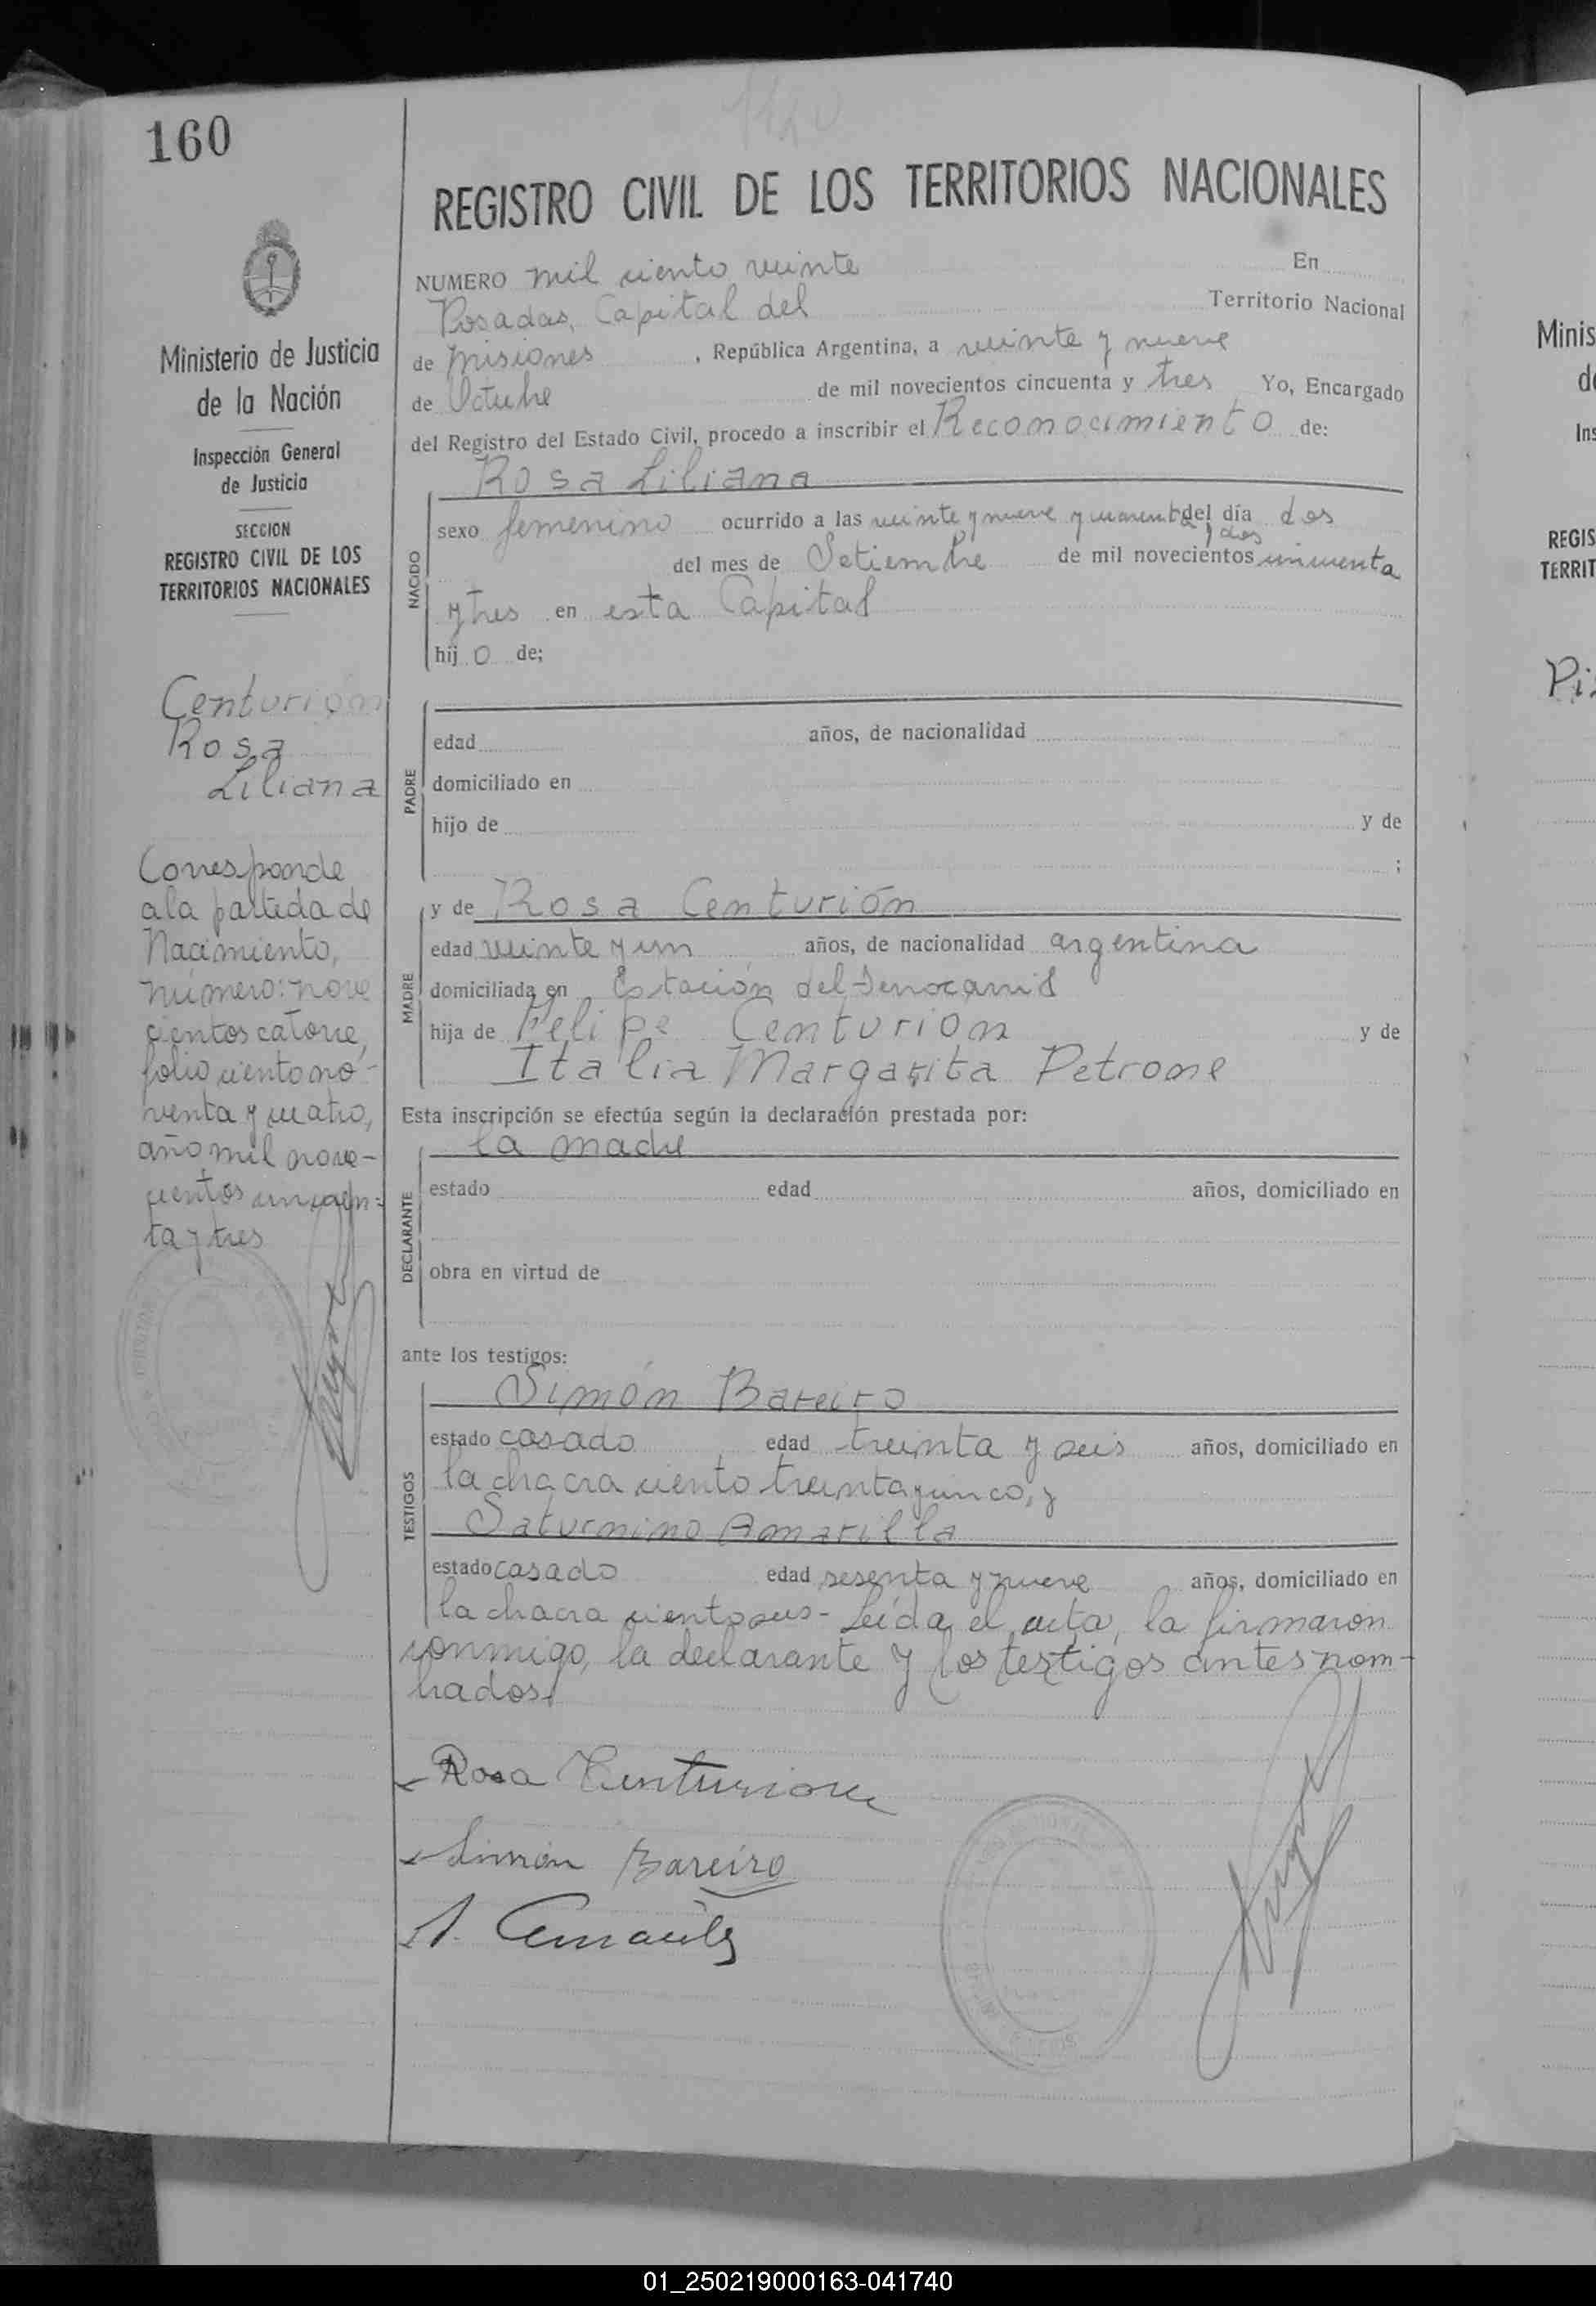 160
REGISTRO CIVIL DE LOS TERRITORIOS NACIONALES
Ministerio de Justicia
de la Nación
Inspección General
de Justicia
SECCION
REGISTRO CIVIL DE LOS
TERRITORIOS NACIONALES
Centurión
Rosa
Liliana
Corresponde
a la partida de
Nacimiento,
número: nove
cientos catorce,
folio ciento no-
venta y cuatro,
año mil nove-
cientos cincuen-
ta y tres
NUMERO mil ciento veinte En
Posadas, Capital del Territorio Nacional
de Misiones, República Argentina, a veinte y nueve
de Octubre de mil novecientos cincuenta y tres Yo, Encargado
del Registro del Estado Civil, procedo a inscribir el Reconocimiento de:
Rosa Liliana
NACIDO
sexo femenino ocurrido a las veinte y nueve y cuarenta y dos del día dos
del mes de Setiembre de mil novecientos cincuenta
y tres en esta Capital
hij o de;
PADRE
edad años, de nacionalidad
domiciliado en
hijo de y de
;
MADRE
y de Rosa Centurión
edad veinte y un años, de nacionalidad argentina
domiciliada en Estación del Ferrocarril
hija de Felipe Centurión y de
Italia Margarita Petrone
Esta inscripción se efectúa según la declaración prestada por:
la madre
DECLARANTE
estado edad años, domiciliado en
obra en virtud de
ante los testigos:
TESTIGOS
Simón Bareiro
estado casado edad treinta y seis años, domiciliado en
la chacra ciento treinta y cinco, y
Saturnino Amarilla
estado casado edad sesenta y nueve años, domiciliado en
la chacra ciento seis - Leída el acta, la firmaron
conmigo, la declarante y los testigos antes nom-
brados.
Rosa Centurion
Simón Bareiro
S. Amarilla
Minis
de
Ins
REGIS
TERRIT
01_250219000163-041740